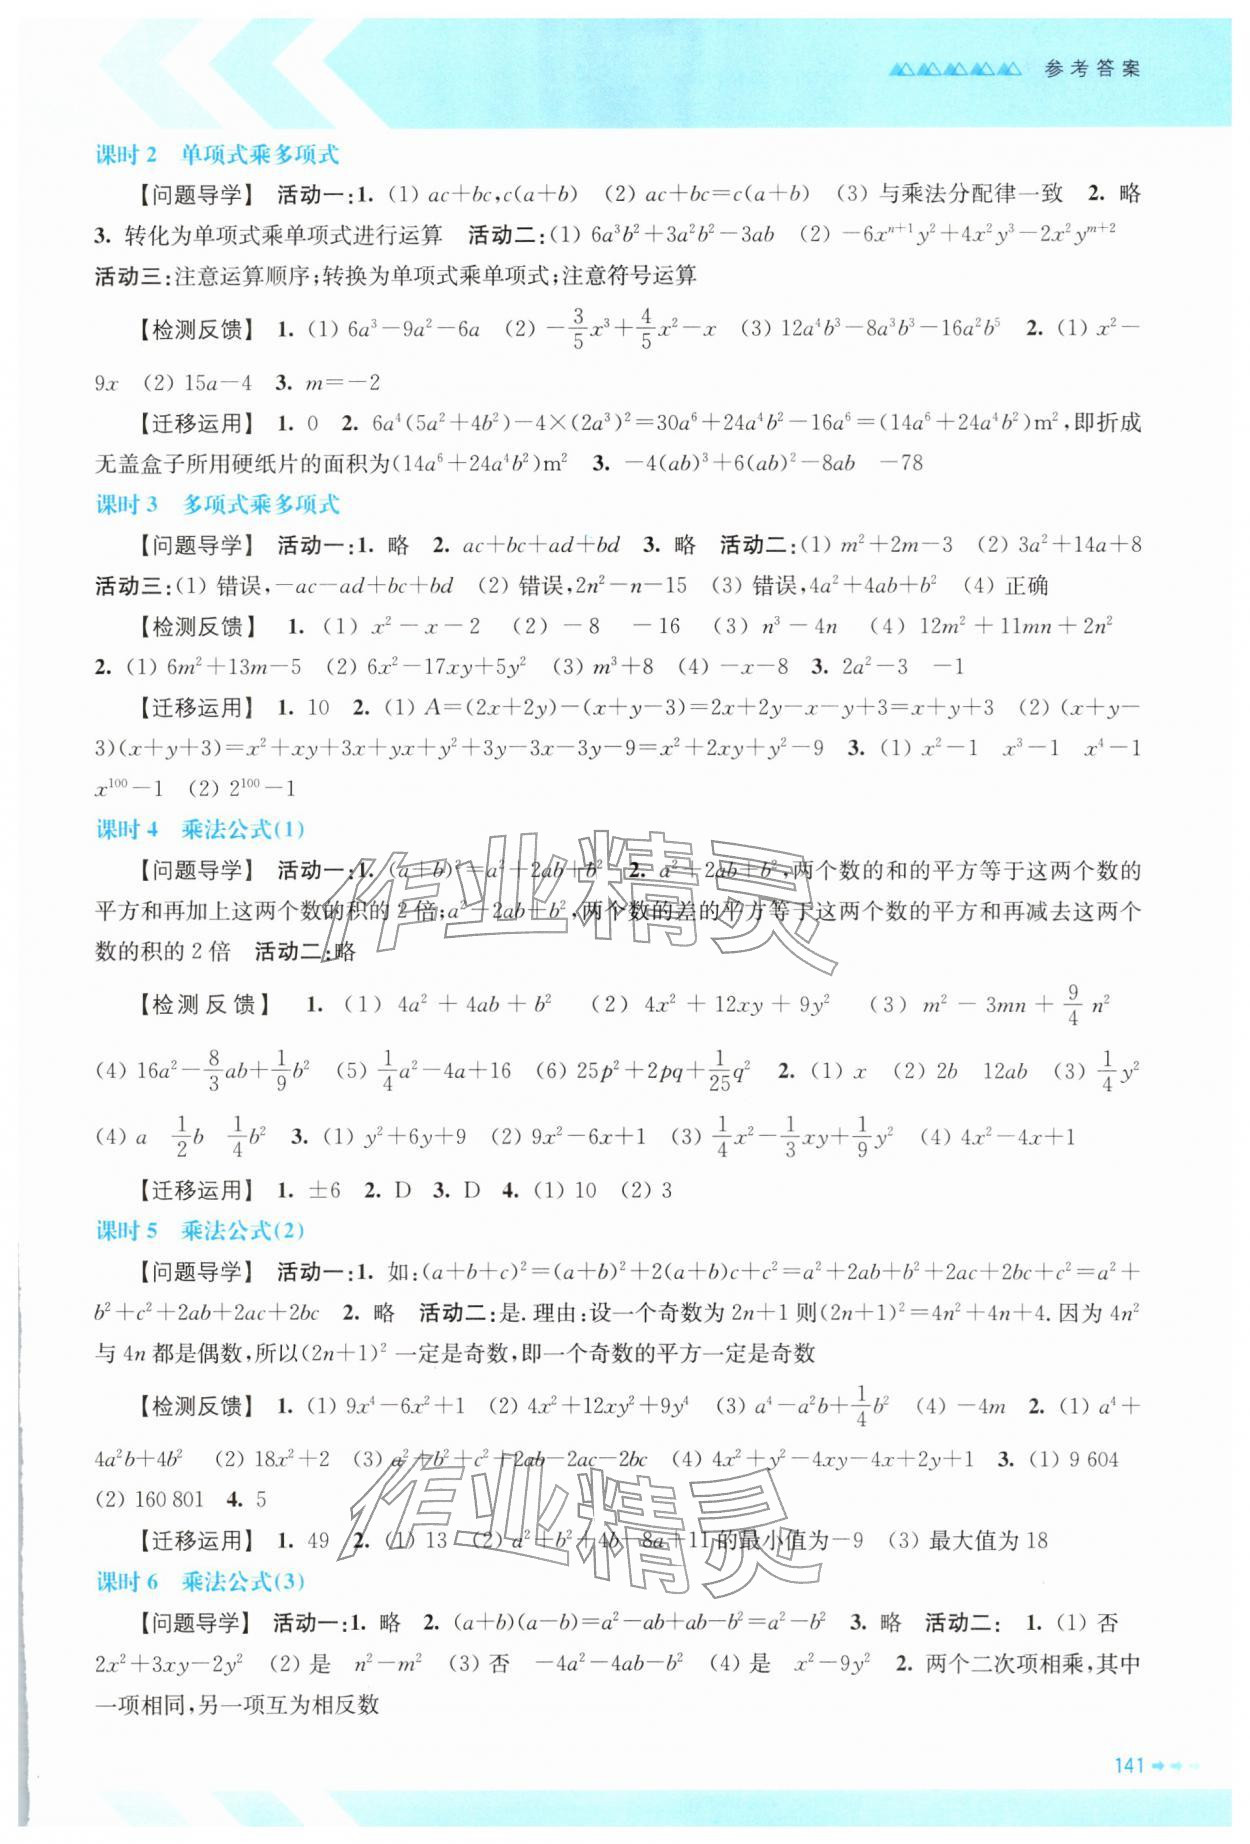 参考答案
课时 2　单项式乘多项式
【问题导学】 活动一:1. (1) ac+bc,c(a+b)　(2) ac+bc=c(a+b)　(3) 与乘法分配律一致　2. 略
3. 转化为单项式乘单项式进行运算　活动二:(1) 6a³b²+3a²b²-3ab　(2) -6xⁿ⁺¹y²+4x²y³-2x²yᵐ⁺²
活动三:注意运算顺序;转换为单项式乘单项式;注意符号运算
【检测反馈】 1. (1) 6a³-9a²-6a　(2) -3/5x³+4/5x²-x　(3) 12a⁴b³-8a³b³-16a²b⁵　2. (1) x²-
9x　(2) 15a-4　3. m=-2
【迁移运用】 1. 0　2. 6a⁴(5a²+4b²)-4×(2a³)²=30a⁶+24a⁴b²-16a⁶=(14a⁶+24a⁴b²)m²,即折成
无盖盒子所用硬纸片的面积为(14a⁶+24a⁴b²)m²　3. -4(ab)³+6(ab)²-8ab　-78
课时 3　多项式乘多项式
【问题导学】 活动一:1. 略　2. ac+bc+ad+bd　3. 略　活动二:(1) m²+2m-3　(2) 3a²+14a+8
活动三:(1) 错误,-ac-ad+bc+bd　(2) 错误,2n²-n-15　(3) 错误,4a²+4ab+b²　(4) 正确
【检测反馈】 1. (1) x²-x-2　(2) -8　-16　(3) n³-4n　(4) 12m²+11mn+2n²
2. (1) 6m²+13m-5　(2) 6x²-17xy+5y²　(3) m³+8　(4) -x-8　3. 2a²-3　-1
【迁移运用】 1. 10　2. (1) A=(2x+2y)-(x+y-3)=2x+2y-x-y+3=x+y+3　(2) (x+y-
3)(x+y+3)=x²+xy+3x+yx+y²+3y-3x-3y-9=x²+2xy+y²-9　3. (1) x²-1　x³-1　x⁴-1
x¹⁰⁰-1　(2) 2¹⁰⁰-1
课时 4　乘法公式(1)
【问题导学】 活动一:1. (a+b)²=a²+2ab+b²　2. a²+2ab+b²,两个数的和的平方等于这两个数的
平方和再加上这两个数的积的 2 倍;a²-2ab+b²,两个数的差的平方等于这两个数的平方和再减去这两个
数的积的 2 倍　活动二:略
【检测反馈】 1. (1) 4a²+4ab+b²　(2) 4x²+12xy+9y²　(3) m²-3mn+9/4n²
(4) 16a²-8/3ab+1/9b²　(5) 1/4a²-4a+16　(6) 25p²+2pq+1/25q²　2. (1) x　(2) 2b　12ab　(3) 1/4y²
(4) a　1/2b　1/4b²　3. (1) y²+6y+9　(2) 9x²-6x+1　(3) 1/4x²-1/3xy+1/9y²　(4) 4x²-4x+1
【迁移运用】 1. ±6　2. D　3. D　4. (1) 10　(2) 3
课时 5　乘法公式(2)
【问题导学】 活动一:1. 如:(a+b+c)²=(a+b)²+2(a+b)c+c²=a²+2ab+b²+2ac+2bc+c²=a²+
b²+c²+2ab+2ac+2bc　2. 略　活动二:是. 理由:设一个奇数为 2n+1 则(2n+1)²=4n²+4n+4. 因为 4n²
与 4n 都是偶数,所以(2n+1)² 一定是奇数,即一个奇数的平方一定是奇数
【检测反馈】 1. (1) 9x⁴-6x²+1　(2) 4x²+12xy²+9y⁴　(3) a⁴-a²b+1/4b²　(4) -4m　2. (1) a⁴+
4a²b+4b²　(2) 18x²+2　(3) a²+b²+c²+2ab-2ac-2bc　(4) 4x²+y²-4xy-4x+2y+1　3. (1) 9 604
(2) 160 801　4. 5
【迁移运用】 1. 49　2. (1) 13　(2) a²+b²+4b-8a+11 的最小值为-9　(3) 最大值为 18
课时 6　乘法公式(3)
【问题导学】 活动一:1. 略　2. (a+b)(a-b)=a²-ab+ab-b²=a²-b²　3. 略　活动二:　1. (1) 否
2x²+3xy-2y²　(2) 是　n²-m²　(3) 否　-4a²-4ab-b²　(4) 是　x²-9y²　2. 两个二次项相乘,其中
一项相同,另一项互为相反数
141
作业精灵
作业精灵